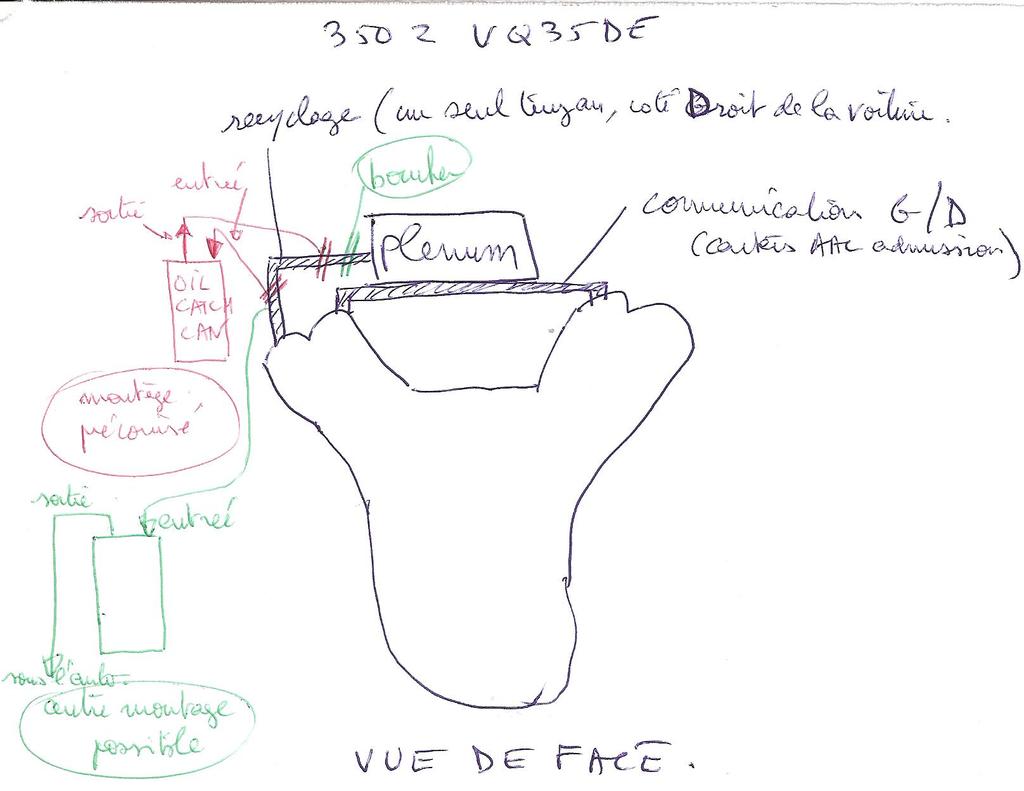 350Z VQ35DE
recyclage (un seul tuyau, coté Droit de la voiture.
entrée
boucher
sortie
communication G/D
(Centres AAC admission)
plenum
OIL
CATCH
CAN
montage
préconisé
sortie
entrée
sous l'auto.
autre montage
possible
VUE DE FACE.